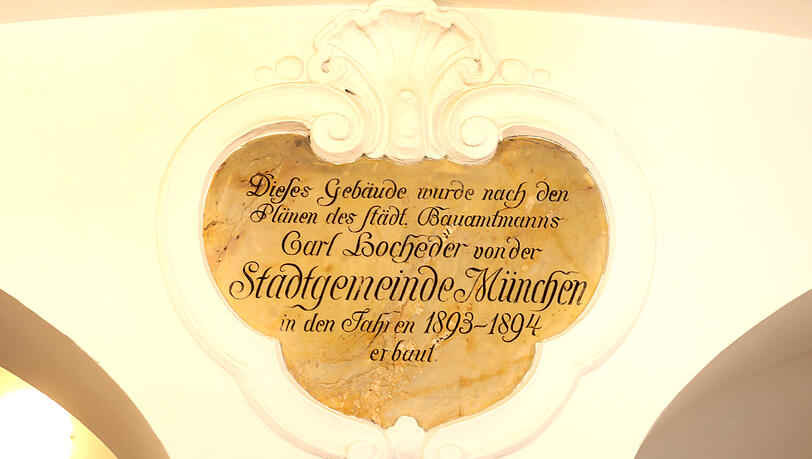 Dieſes Gebäude wurde nach den
Plänen des ſtädt. Bauamtmanns
Carl Hocheder von der
Stadtgemeinde München
in den Jahren 1893-1894
erbaut.